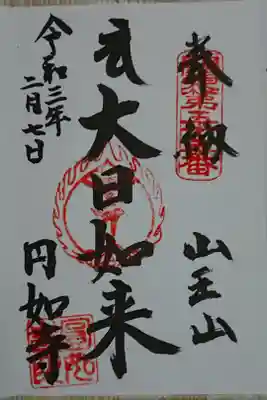 奉納
山王山
大日如来
円如寺
令和三年
二月七日